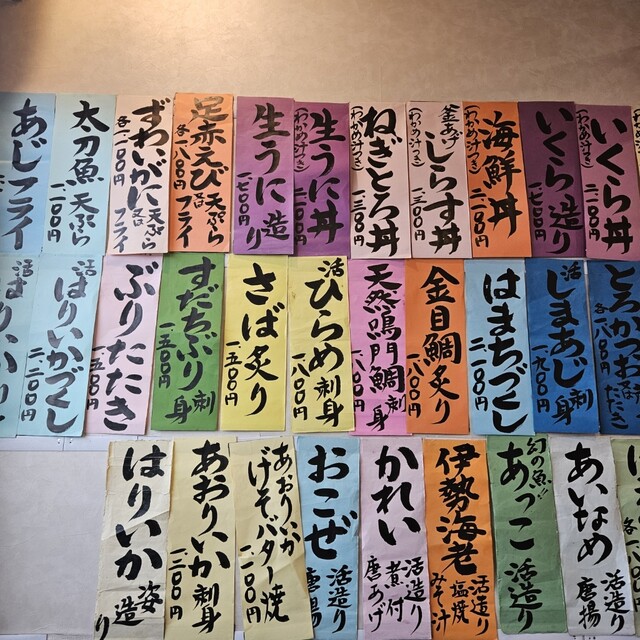 いくら丼
(わかめ汁つき)
二、一〇〇円
いくら造り
一、七〇〇円
海鮮丼
(わかめ汁つき)
二、一〇〇円
釜あげ
しらす丼
(わかめ汁つき)
一、三〇〇円
ねぎとろ丼
(わかめ汁つき)
一、三〇〇円
生うに丼
(わかめ汁つき)
生うに造り
一、七〇〇円
足赤えび
天ぷら
又は
フライ
各一、八〇〇円
ずわいがに
天ぷら
又は
フライ
各一、一〇〇円
太刀魚
天ぷら
一、一〇〇円
あじフライ
とろかつお
又は
たたき
各一、八〇〇円
活
しまあじ
刺身
一、九〇〇円
はまちづくし
二、一〇〇円
金目鯛
炙り
一、八〇〇円
天然鳴門鯛
刺身
一、八〇〇円
活
ひらめ
刺身
一、八〇〇円
さば炙り
一、五〇〇円
すだちぶり
刺身
一、五〇〇円
ぶりたたき
一、五〇〇円
活
はりいかづくし
二、二〇〇円
活
はりいか
あいなめ
活造り
唐揚
幻の魚!!
あっこ
活造り
伊勢海老
活造り
塩焼
みそ汁
かれい
活造り
煮付
唐あげ
活
おこぜ
活造り
唐揚
あおりいか
げそバター焼
あおりいか
刺身
一、二〇〇円
はりいか
姿造り